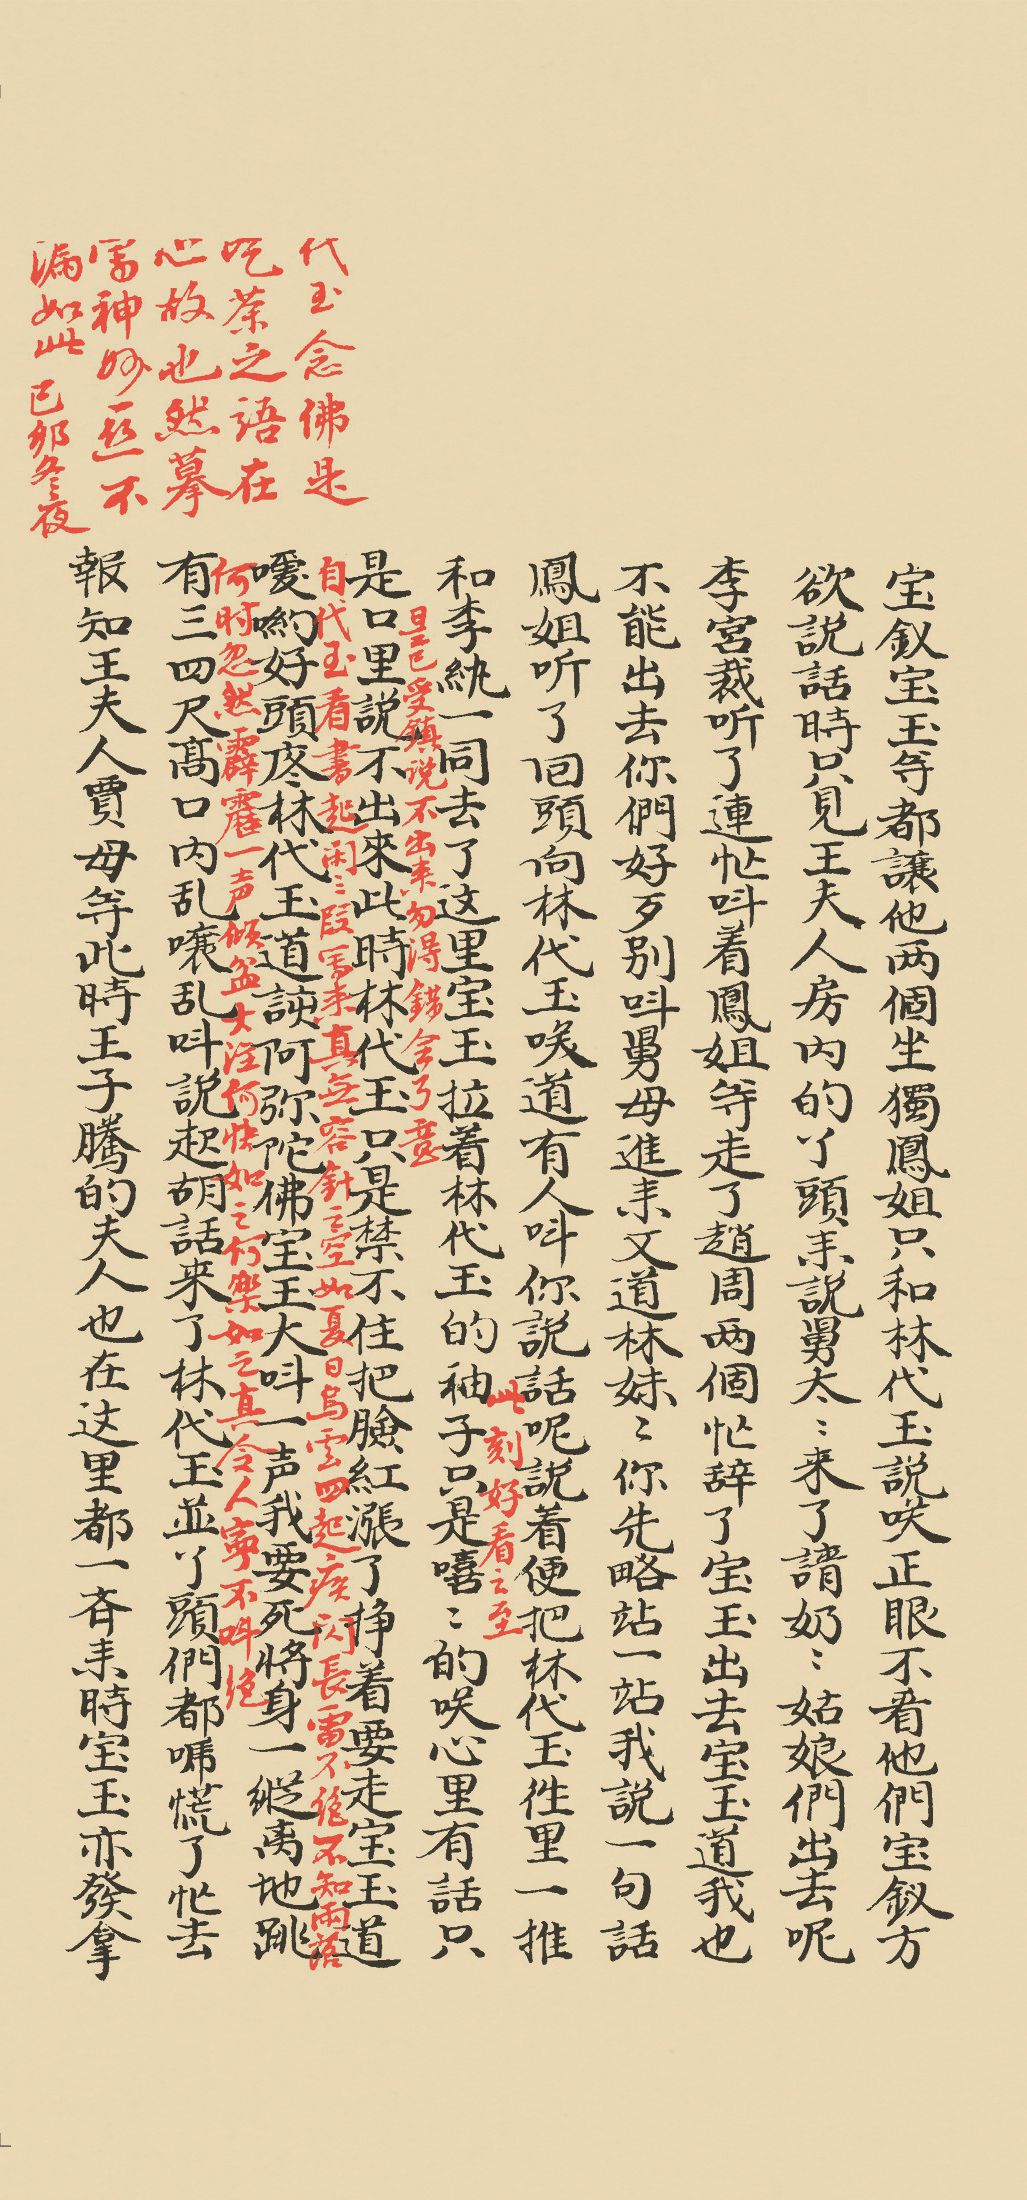 宝釵宝玉等都讓他两個坐獨鳳姐只和林代玉說咲正眼不看他們宝釵方
欲説話時只見王夫人房内的丫頭来説舅太〻来了請奶〻姑娘們出去呢
李宮裁听了連忙呌着鳳姐等走了趙周两個忙辞了宝玉出去宝玉道我也
不能出去你們好歹别呌舅母進来又道林妹〻你先略站一站我説一句話
鳳姐听了回頭向林代玉咲道有人呌你説話呢説着便把林代玉徃里一推
和李紈一同去了这里宝玉拉着林代玉的袖子只是嘻〻的咲心里有話只
是口里説不出來此時林代玉只是禁不住把臉紅漲了掙着要走宝玉道
噯喲好頭疼林代玉道該阿弥陀佛宝玉大呌一声我要死將身一縱离地跳
有三四尺髙口内乱嚷乱呌説起胡話来了林代玉並丫頭們都唬慌了忙去
報知王夫人賈母等此時王子騰的夫人也在这里都一斉来時宝玉亦發拿
此刻好看之至
是已受鎮説不出来勿得錯会了意
自代玉看書起闲〻一段寫来真無容針之空如夏日烏雲四起疾闪長雷不绝不知雨落
何时忽然霹靂一声倾盆大注何快如之何樂如之真令人寧不呌绝
代玉念佛是
吃茶之語在
心故也然摹
寫神妙一丝不
漏如此 己卯冬夜